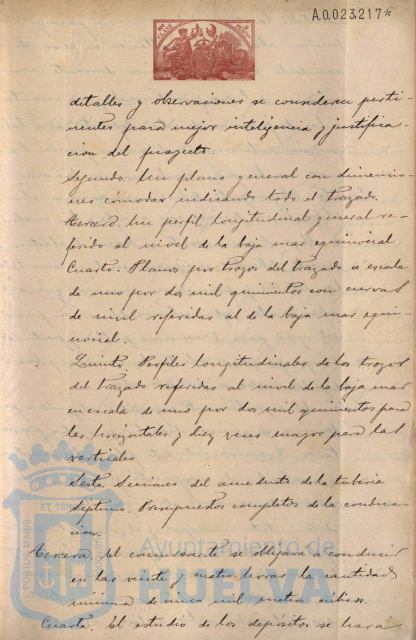 A.0.023.217*
detalles y observaciones se consideren perti-
nentes para mejor inteligencia y justifica-
cion del proyecto.
Segundo. Un plano general con dimensio-
nes comodas indicando todo el trazado.
Tercero. Un perfil longitudinal general re-
ferido al nivel de la baja mar equinoccial
Cuarto. Planos por trozos del trazado a escala
de uno por dos mil quinientos con curvas
de nivel referidas al de la baja mar equi-
noccial.
Quinto. Perfiles longitudinales de los trozos
del trazado referidas al nivel de la baja mar
en escala de uno por dos mil quinientos para
las horizontales y diez veces mayor para las
verticales
Sesto Secciones del asiento de la tuberia
Septimo Presupuestos completos de la conduc-
cion.
Tercera. El concursante se obligara a conducir
en las veinte y cuatro horas la cantidad
minima de cinco mil metros cubicos.
Cuarta. El estudio de los depósitos se hara
Ayuntamiento de
HUELVA
PORTUS MARIS